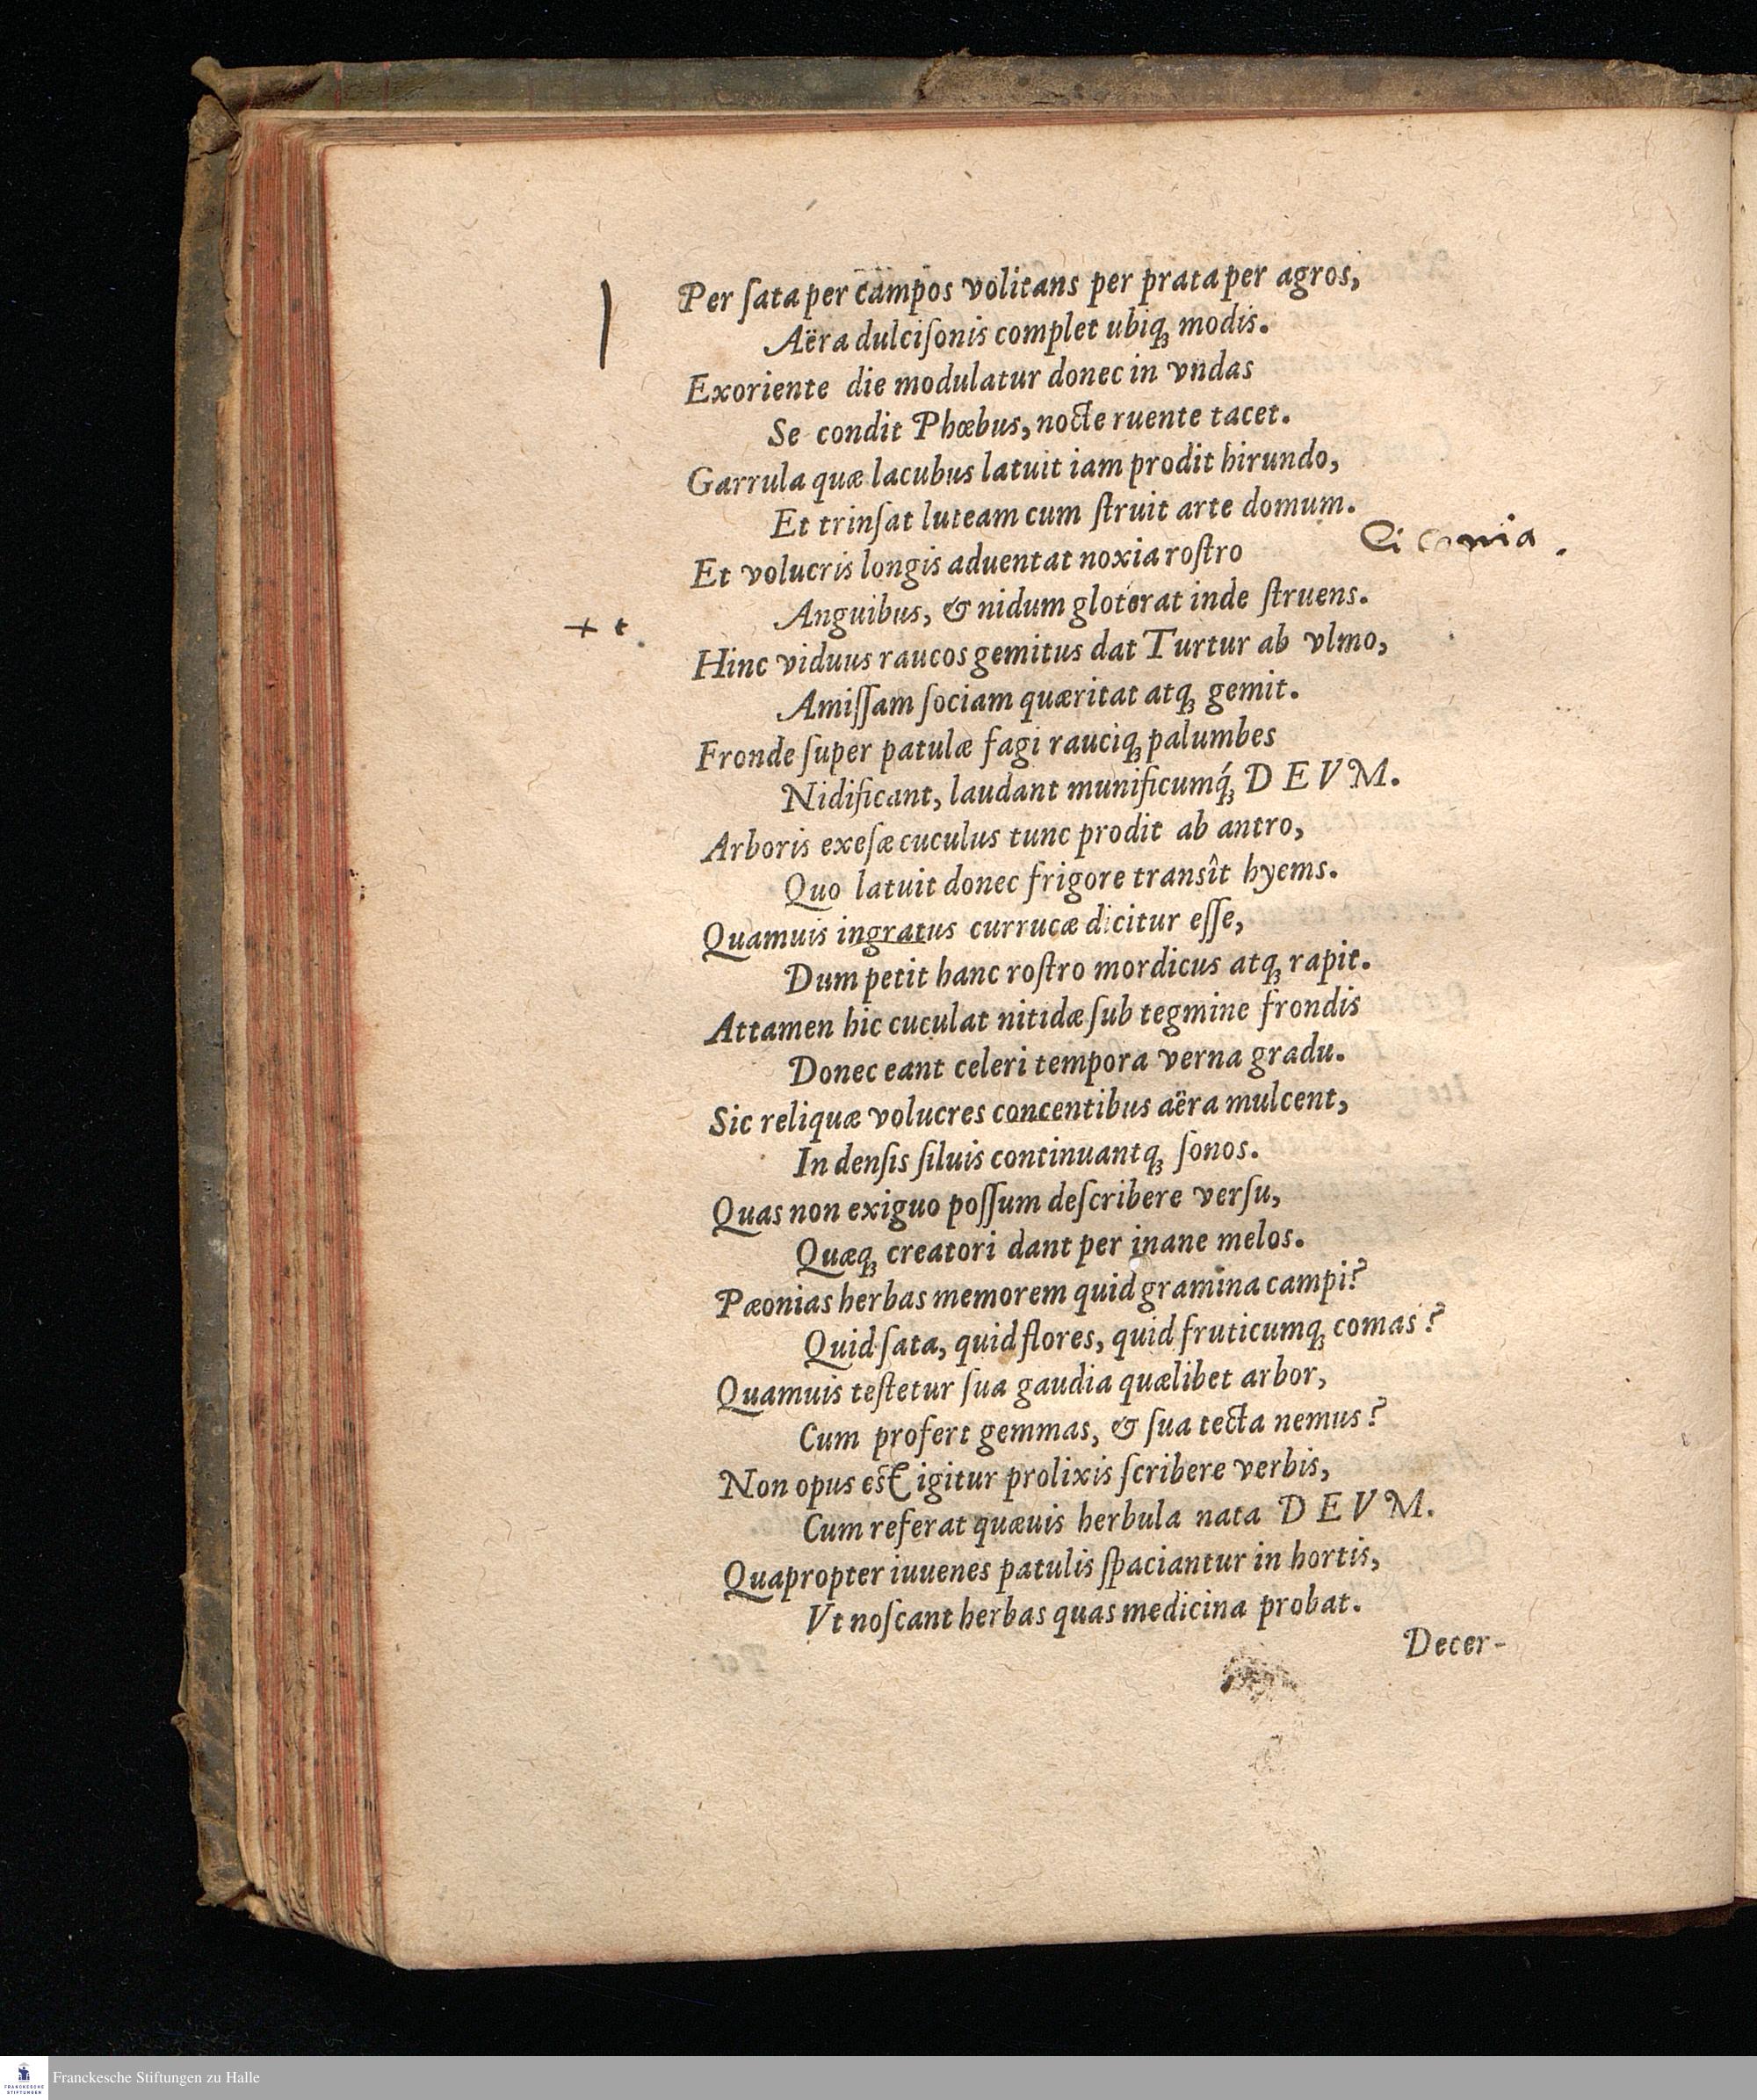 Per ſata per campos volitans per prata per agros,
Aëra dulciſonis complet ubiqꝫ modis.
Exoriente die modulatur donec in vndas
Se condit Phœbus, nocte ruente tacet.
Garrula quæ lacubus latuit iam prodit hirundo,
Et trinſat luteam cum ſtruit arte domum.
Ciconia.
Et volucris longis aduentat noxia roſtro
Anguibus, & nidum gloterat inde ſtruens.
+ t.
Hinc viduus raucos gemitus dat Turtur ab vlmo,
Amiſſam ſociam quæritat atqꝫ gemit.
Fronde ſuper patulæ fagi rauciqꝫ palumbes
Nidificant, laudant munificumq́ꝫ DEVM.
Arboris exeſæ cuculus tunc prodit ab antro,
Quo latuit donec frigore transît hyems.
Quamuis ingratus currucæ dicitur eſſe,
Dum petit hanc roſtro mordicus atqꝫ rapit.
Attamen hic cuculat nitidæ ſub tegmine frondis
Donec eant celeri tempora verna gradu.
Sic reliquæ volucres concentibus aëra mulcent,
In denſis ſiluis continuantqꝫ ſonos.
Quas non exiguo poſſum deſcribere verſu,
Quæqꝫ creatori dant per inane melos.
Pæonias herbas memorem quid gramina campi?
Quid ſata, quid flores, quid fruticumqꝫ comas?
Quamuis teſtetur ſua gaudia quælibet arbor,
Cum profert gemmas, & ſua tecta nemus?
Non opus eſt igitur prolixis ſcribere verbis,
Cum referat quæuis herbula nata DEVM.
Quapropter iuuenes patulis ſpaciantur in hortis,
Vt noſcant herbas quas medicina probat.
Decer-
FRANCKESCHE
STIFTUNGEN
Franckesche Stiftungen zu Halle